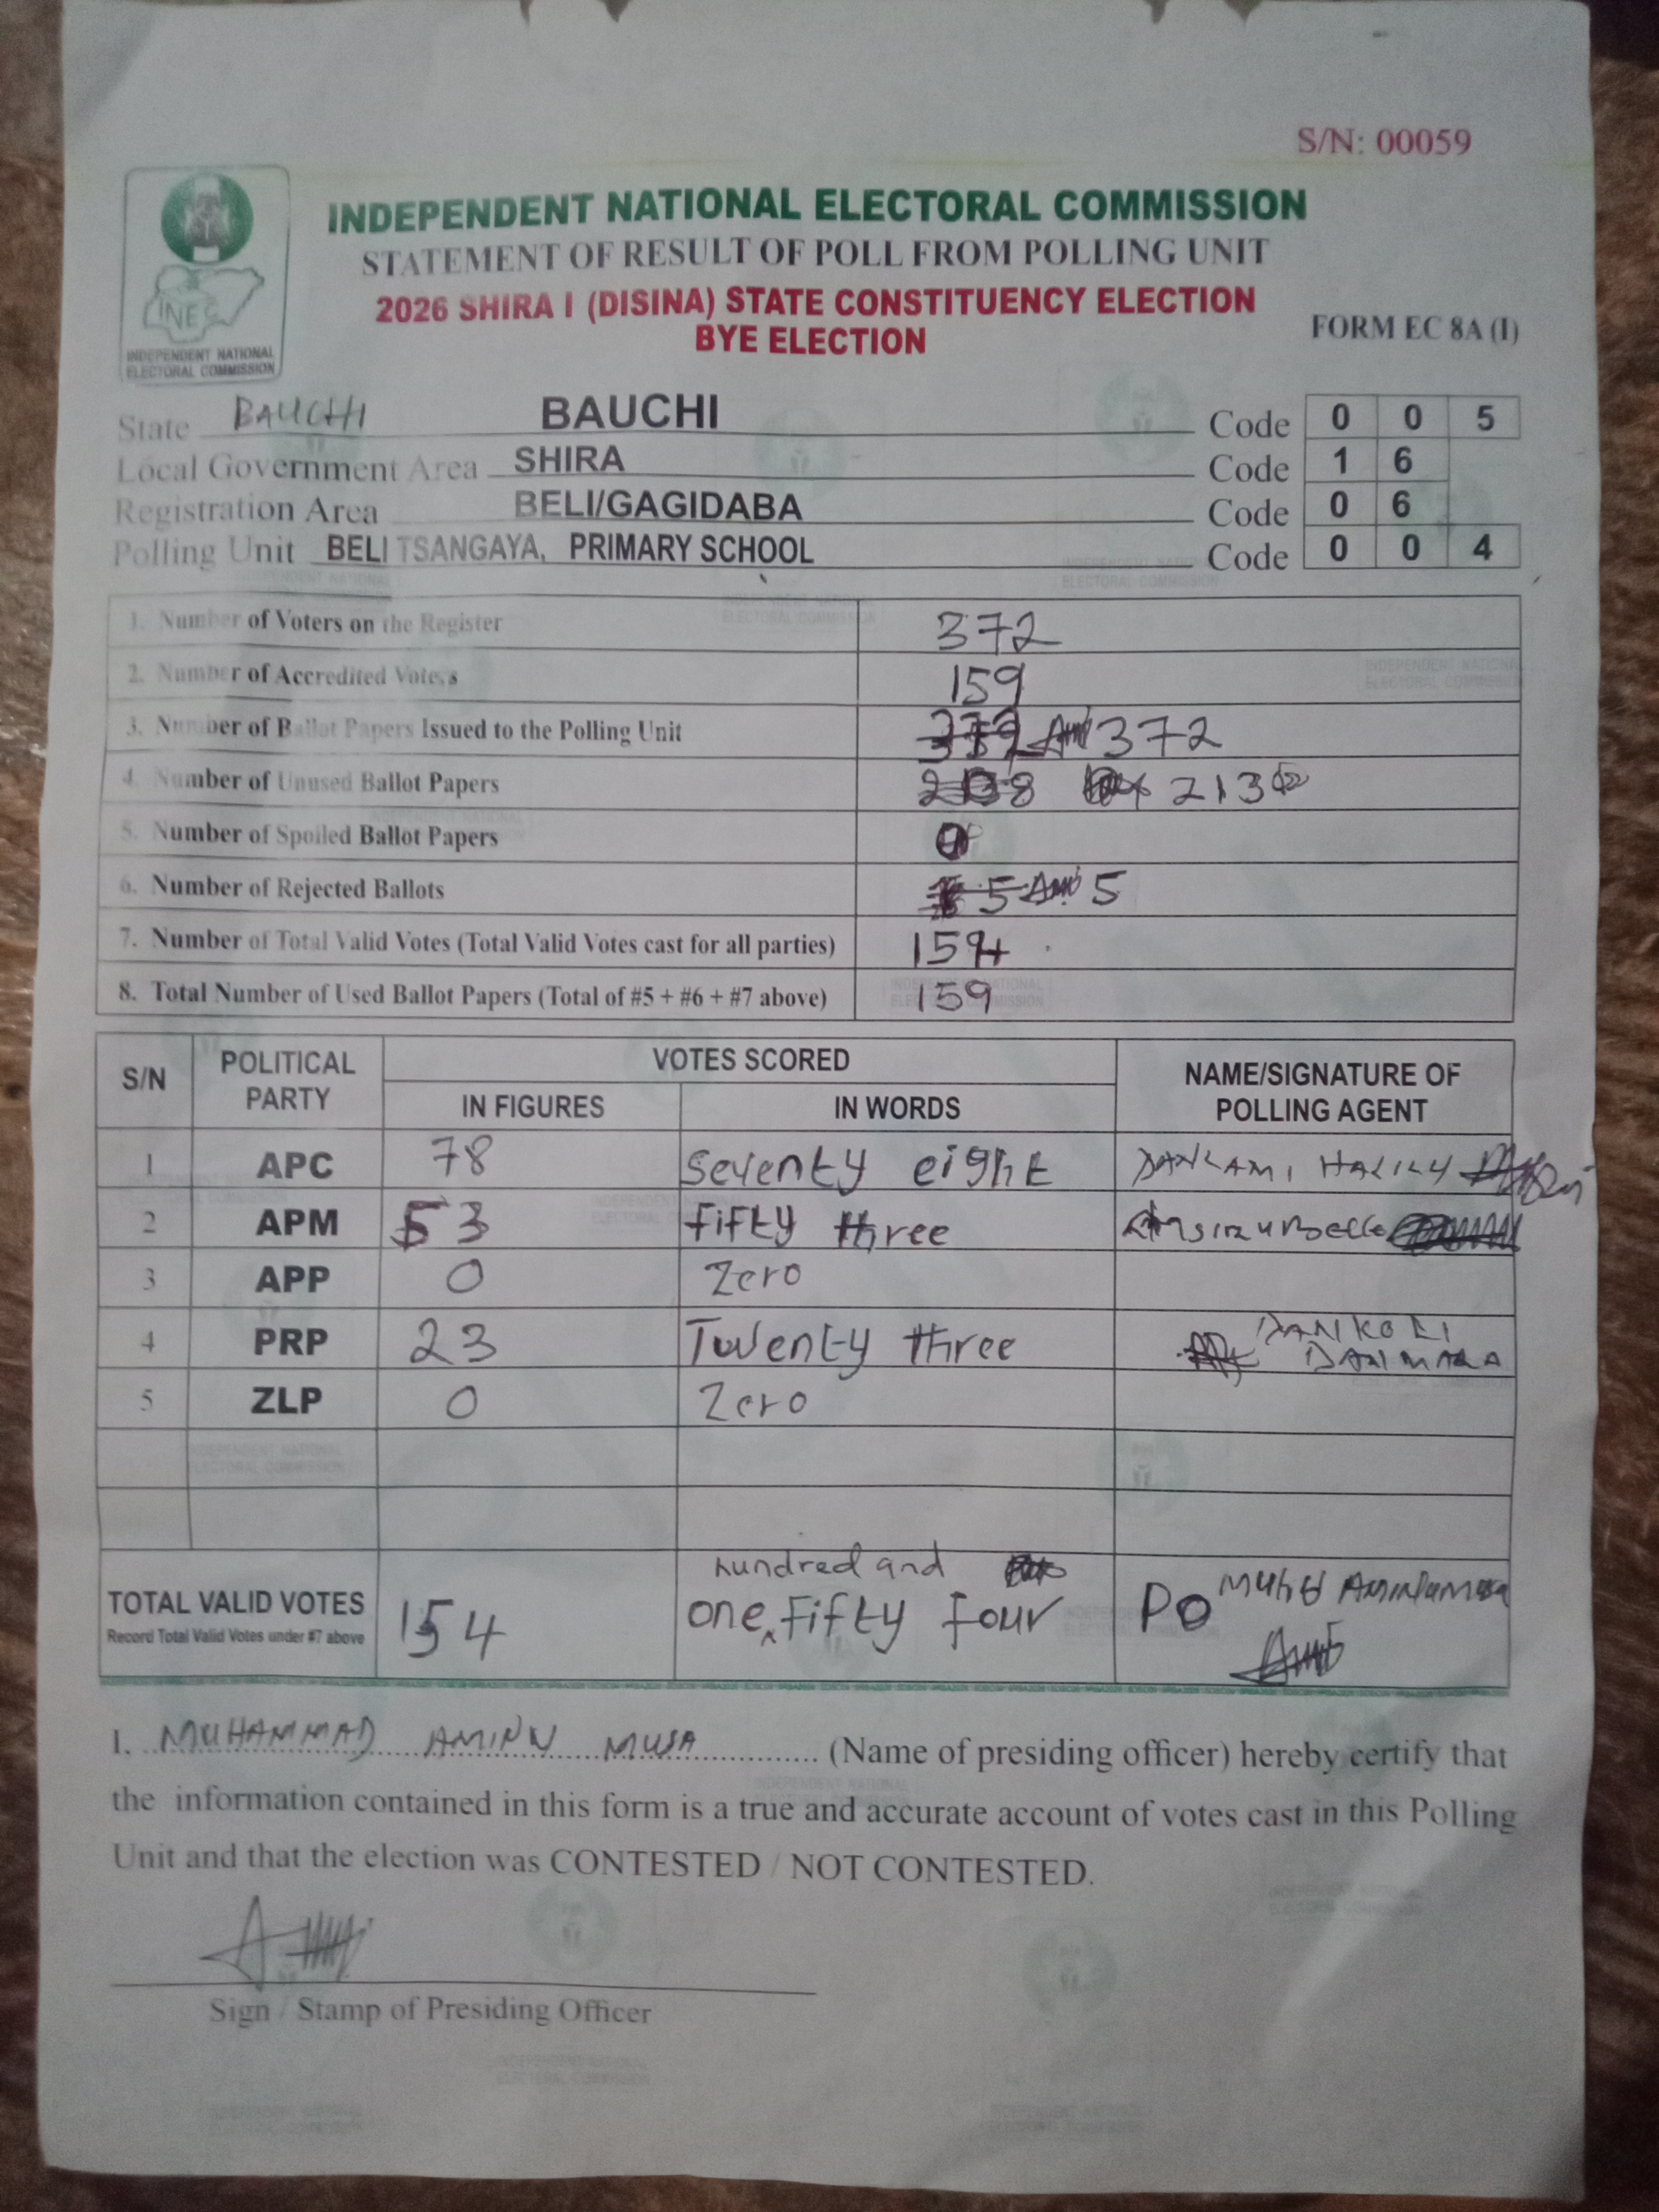 S/N: 00059
INDEPENDENT NATIONAL ELECTORAL COMMISSION
STATEMENT OF RESULT OF POLL FROM POLLING UNIT
2026 SHIRA I (DISINA) STATE CONSTITUENCY ELECTION
BYE ELECTION
FORM EC 8A (I)
INEC
INDEPENDENT NATIONAL
ELECTORAL COMMISSION
State BAUCHI BAUCHI Code 0 0 5
Local Government Area SHIRA Code 1 6
Registration Area BELI/GAGIDABA Code 0 6
Polling Unit BELI TSANGAYA, PRIMARY SCHOOL Code 0 0 4
1. Number of Voters on the Register 372
2. Number of Accredited Voters 159
3. Number of Ballot Papers Issued to the Polling Unit 372
4. Number of Unused Ballot Papers 213
5. Number of Spoiled Ballot Papers
6. Number of Rejected Ballots 5 5
7. Number of Total Valid Votes (Total Valid Votes cast for all parties) 154
8. Total Number of Used Ballot Papers (Total of #5 + #6 + #7 above) 159
S/N POLITICAL PARTY VOTES SCORED NAME/SIGNATURE OF POLLING AGENT
IN FIGURES IN WORDS
1 APC 78 Seventy eight
2 APM 53 fifty three
3 APP 0 Zero
4 PRP 23 Twenty three
5 ZLP 0 Zero
hundred and
TOTAL VALID VOTES 154 one fifty four PO
Record Total Valid Votes under #7 above
I. MUHAMMAD AMINU MUSA (Name of presiding officer) hereby certify that
the information contained in this form is a true and accurate account of votes cast in this Polling
Unit and that the election was CONTESTED / NOT CONTESTED.
Sign / Stamp of Presiding Officer